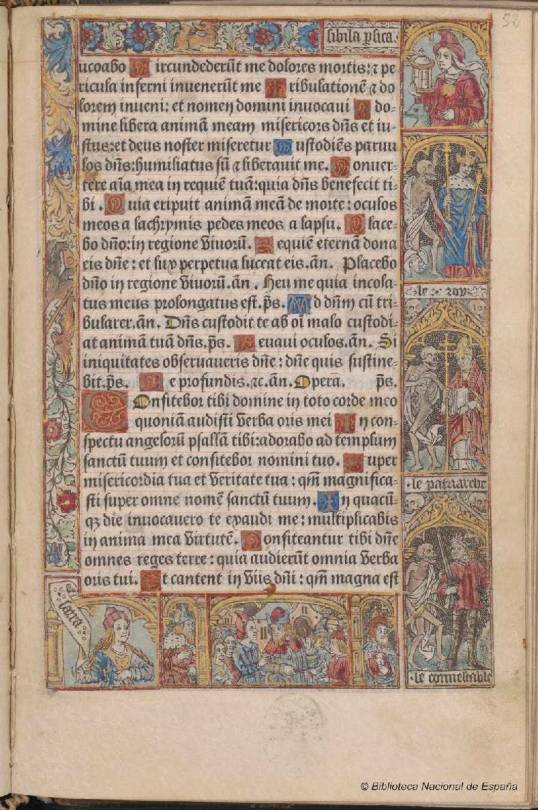 58
sibila ꝑsica.
uocabo Circundederūt me dolores mortis: ⁊ pe
ricula inferni invenerūt me Tribulationē ⁊ do
lorem inveni: et nomen domini invocavi O do-
mine libera animā meam misericors dn̄s et iu-
stus: et deus noster miseretur Custodiēs parvu
los dn̄s: humiliatus sū ⁊ liberavit me. Conver-
tere aīa mea in requiē tuā: quia dn̄s benefecit ti-
bi. Quia eripuit animā meā de morte: oculos
meos a lachrymis pedes meos a lapsu. Place-
bo dn̄o: in regione vivorū. Requiē eternā dona
eis dn̄e: et lux perpetua luceat eis. an̄. Placebo
dn̄o in regione vivorū. an̄. Heu me quia incola-
tus meus prolongatus est. p̄s. Ad dn̄m cū tri-
bularer. an̄. Dn̄s custodit te ab oī malo custodi-
at animā tuā dn̄s. p̄s. Levavi oculos. an̄. Si
iniquitates observaveris dn̄e: dn̄e quis sustine-
bit. p̄s. De profundis. ⁊c. an̄. Opera. p̄s.
Confitebor tibi domine in toto corde meo
quoniā audisti verba oris mei In con-
spectu angelorū psallā tibi: adorabo ad templum
sanctū tuum et confitebor nomini tuo. Super
misericordia tua et veritate tua: qm̄ magnifica-
sti super omne nomē sanctū tuum. In quacū-
qꝫ die invocavero te exaudi me: multiplicabis
in anima mea virtutē. Confiteantur tibi dn̄e
omnes reges terre: quia audierūt omnia verba
oris tui. Et cantent in viis dn̄i: qm̄ magna est
le roy
le patriarche
le connestable
© Biblioteca Nacional de España